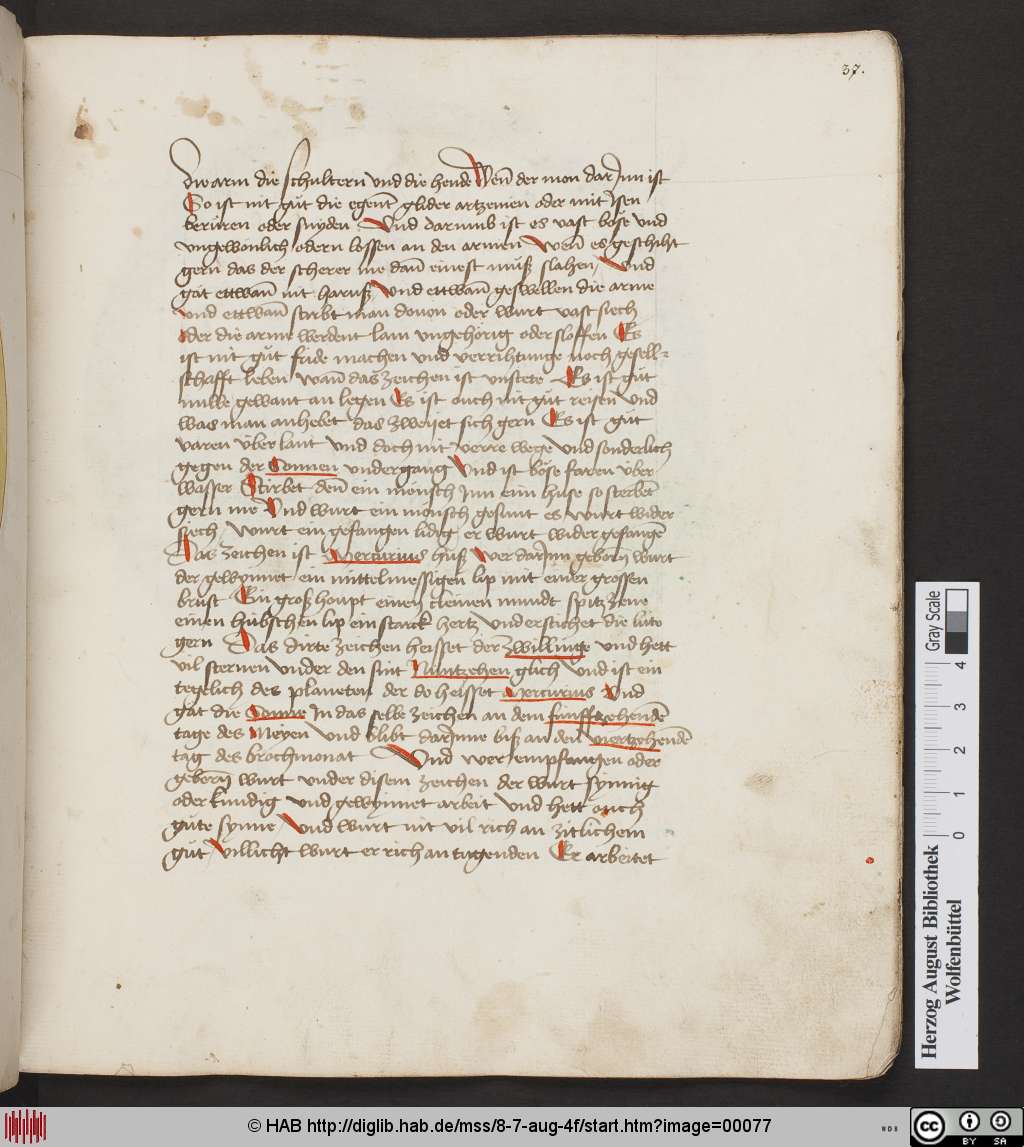 37.
die arm die schultern vnd die hende Wen̄ der mon dar Jnn ist
So ist nit gůt die egen̄t glider artzenien oder mit Jsen
beruren oder snyden Vnd darumb ist es vast bo̊se vnd
vngewonlich odern lossen an den armen Wen̄ es geschiht
gern das der scherer me dan̄ einest můß slahen / Vnd
gat ettwan̄ nit haruß Vnd ettwan̄ geswellen die arme
vnd ettwan̄ stirbt man douon oder wurt vast siech
oder die arme werdent lam vngeho̊rig oder sloffen Es
ist nit gůt fride machen vnd verrihtunge noch gesell⸗
schafft leben wan̄ das zeichen ist vnstete Es ist gůt
nuwe gewant an legen Es ist ouch nit gůt reisen vnd
was man anhebet das zweyet sich gern Es ist gůt
varen über lant vnd doch nit verre wege vnd sonderlich
gegen der Sonnen vndergang Vnd ist bo̊se faren über
wasser Stirbet den̄ ein mo̊nsch Jnn eim huse so sterben̄t
gern me Vnd wurt ein mo̊nsch gesunt es wurt wider
siech / wurt ein gefangen lidig / er wurt wider gefangē
Das zeichen ist Mercurius huß Wer dar Jnn geborn wurt
der gewynnet ein mittelmessigen lip mit einer grossen
brust Ein groß houpt einen cleinen mundt spitz zene
einen hu̇bschen lip ein starck hertz vnd erstichet die lu̇te
gern Das dirte zeichen heisset der zwillinge vnd hett
vil sternen vnder den sint Nu̇ntzehen glich vnd ist ein
tegelich des planeten der do heisset Mercurius Vnd
gat die Sonne Jn das selbe zeichen an dem fünfftzehendē
tage des Meyen vnd blibt dar Jnne biß an den viertzehendē
tag des brochmonat Vnd wer empfangen oder
geborn wurt vnder disem zeichen der wurt synnig
oder kundig vnd gewynnet arbeit vnd hett ouch
gůte synne / Vnd wurt nit vil rich an zitlichem
gůt / villicht wurt er rich an tugenden Er arbeitet
Gray Scale
4
3
2
1
0
Herzog August Bibliothek
Wolfenbüttel
© HAB http://diglib.hab.de/mss/8-7-aug-4f/start.htm?image=00077
WDB
CC BY SA